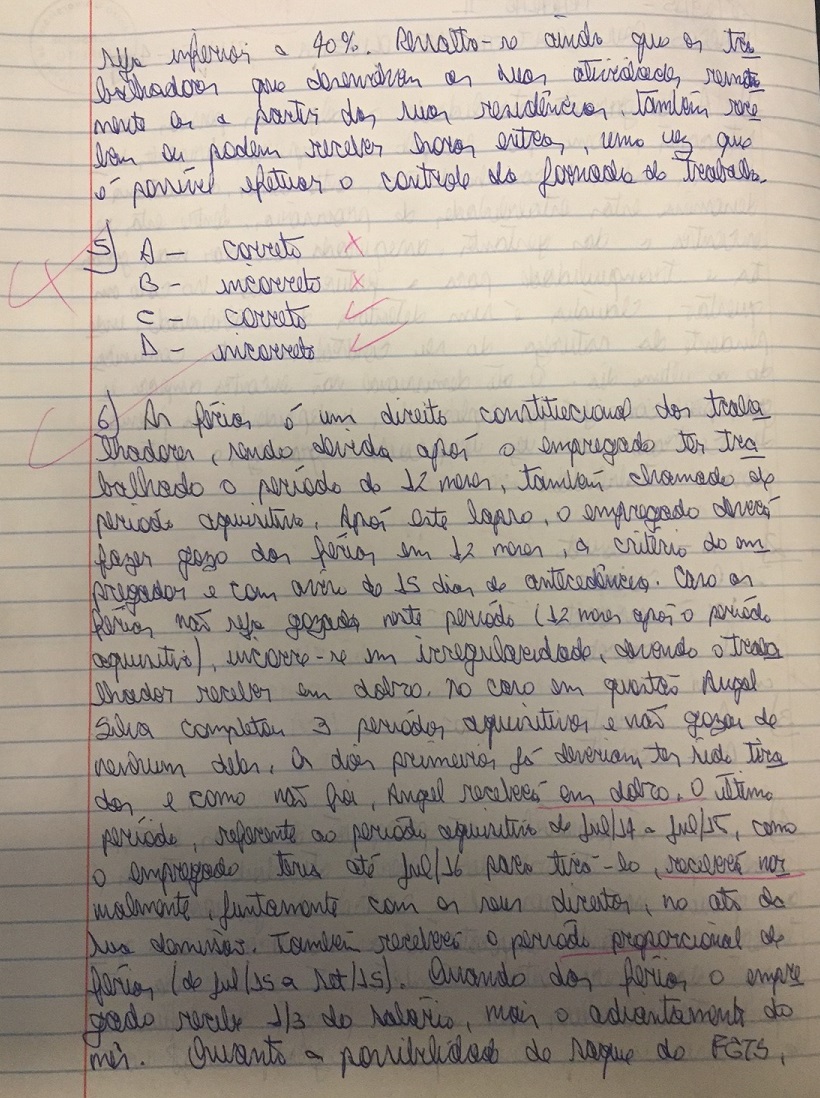 seja inferior a 40%. Ressalta-se ainda que os tra
balhadores que desenvolvem as suas atividades remota
mente ou a partir das suas residências, também rece
bem ou podem receber horas extras, uma vez que
é possível efetuar o controle da jornada de trabalho.
5) A - correto
B - incorreto
C - correto
D - incorreto
6) As férias é um direito constitucional dos traba
lhadores, sendo devida após o empregado ter tra
balhado o período de 12 meses, também chamado de
período aquisitivo. Após este lapso, o empregado deverá
fazer gozo das férias em 12 meses, a critério do em
pregador e com aviso de 15 dias de antecedência. Caso as
férias não seja gozadas neste período (12 meses após o período
aquisitivo), incorre-se em irregularidade, devendo o traba
lhador receber em dobro. No caso em questão Angel
Silva completou 3 períodos aquisitivos e não gozou de
nenhum deles. Os dois primeiros já deveriam ter sido tira
dos e como não foi, Angel receberá em dobro. O último
período, referente ao período aquisitivo de jul/14 a jul/15, como
o empregado teria até jul/16 para tirá-lo, receberá nor
malmente, juntamente com os seus direitos, no ato da
sua demissão. Também receberá o período proporcional de
férias (de jul/15 a set/15). Quando das férias o empre
gado recebe 1/3 do salário, mais o adiantamento do
mês. Quanto a possibilidade de saque do FGTS,